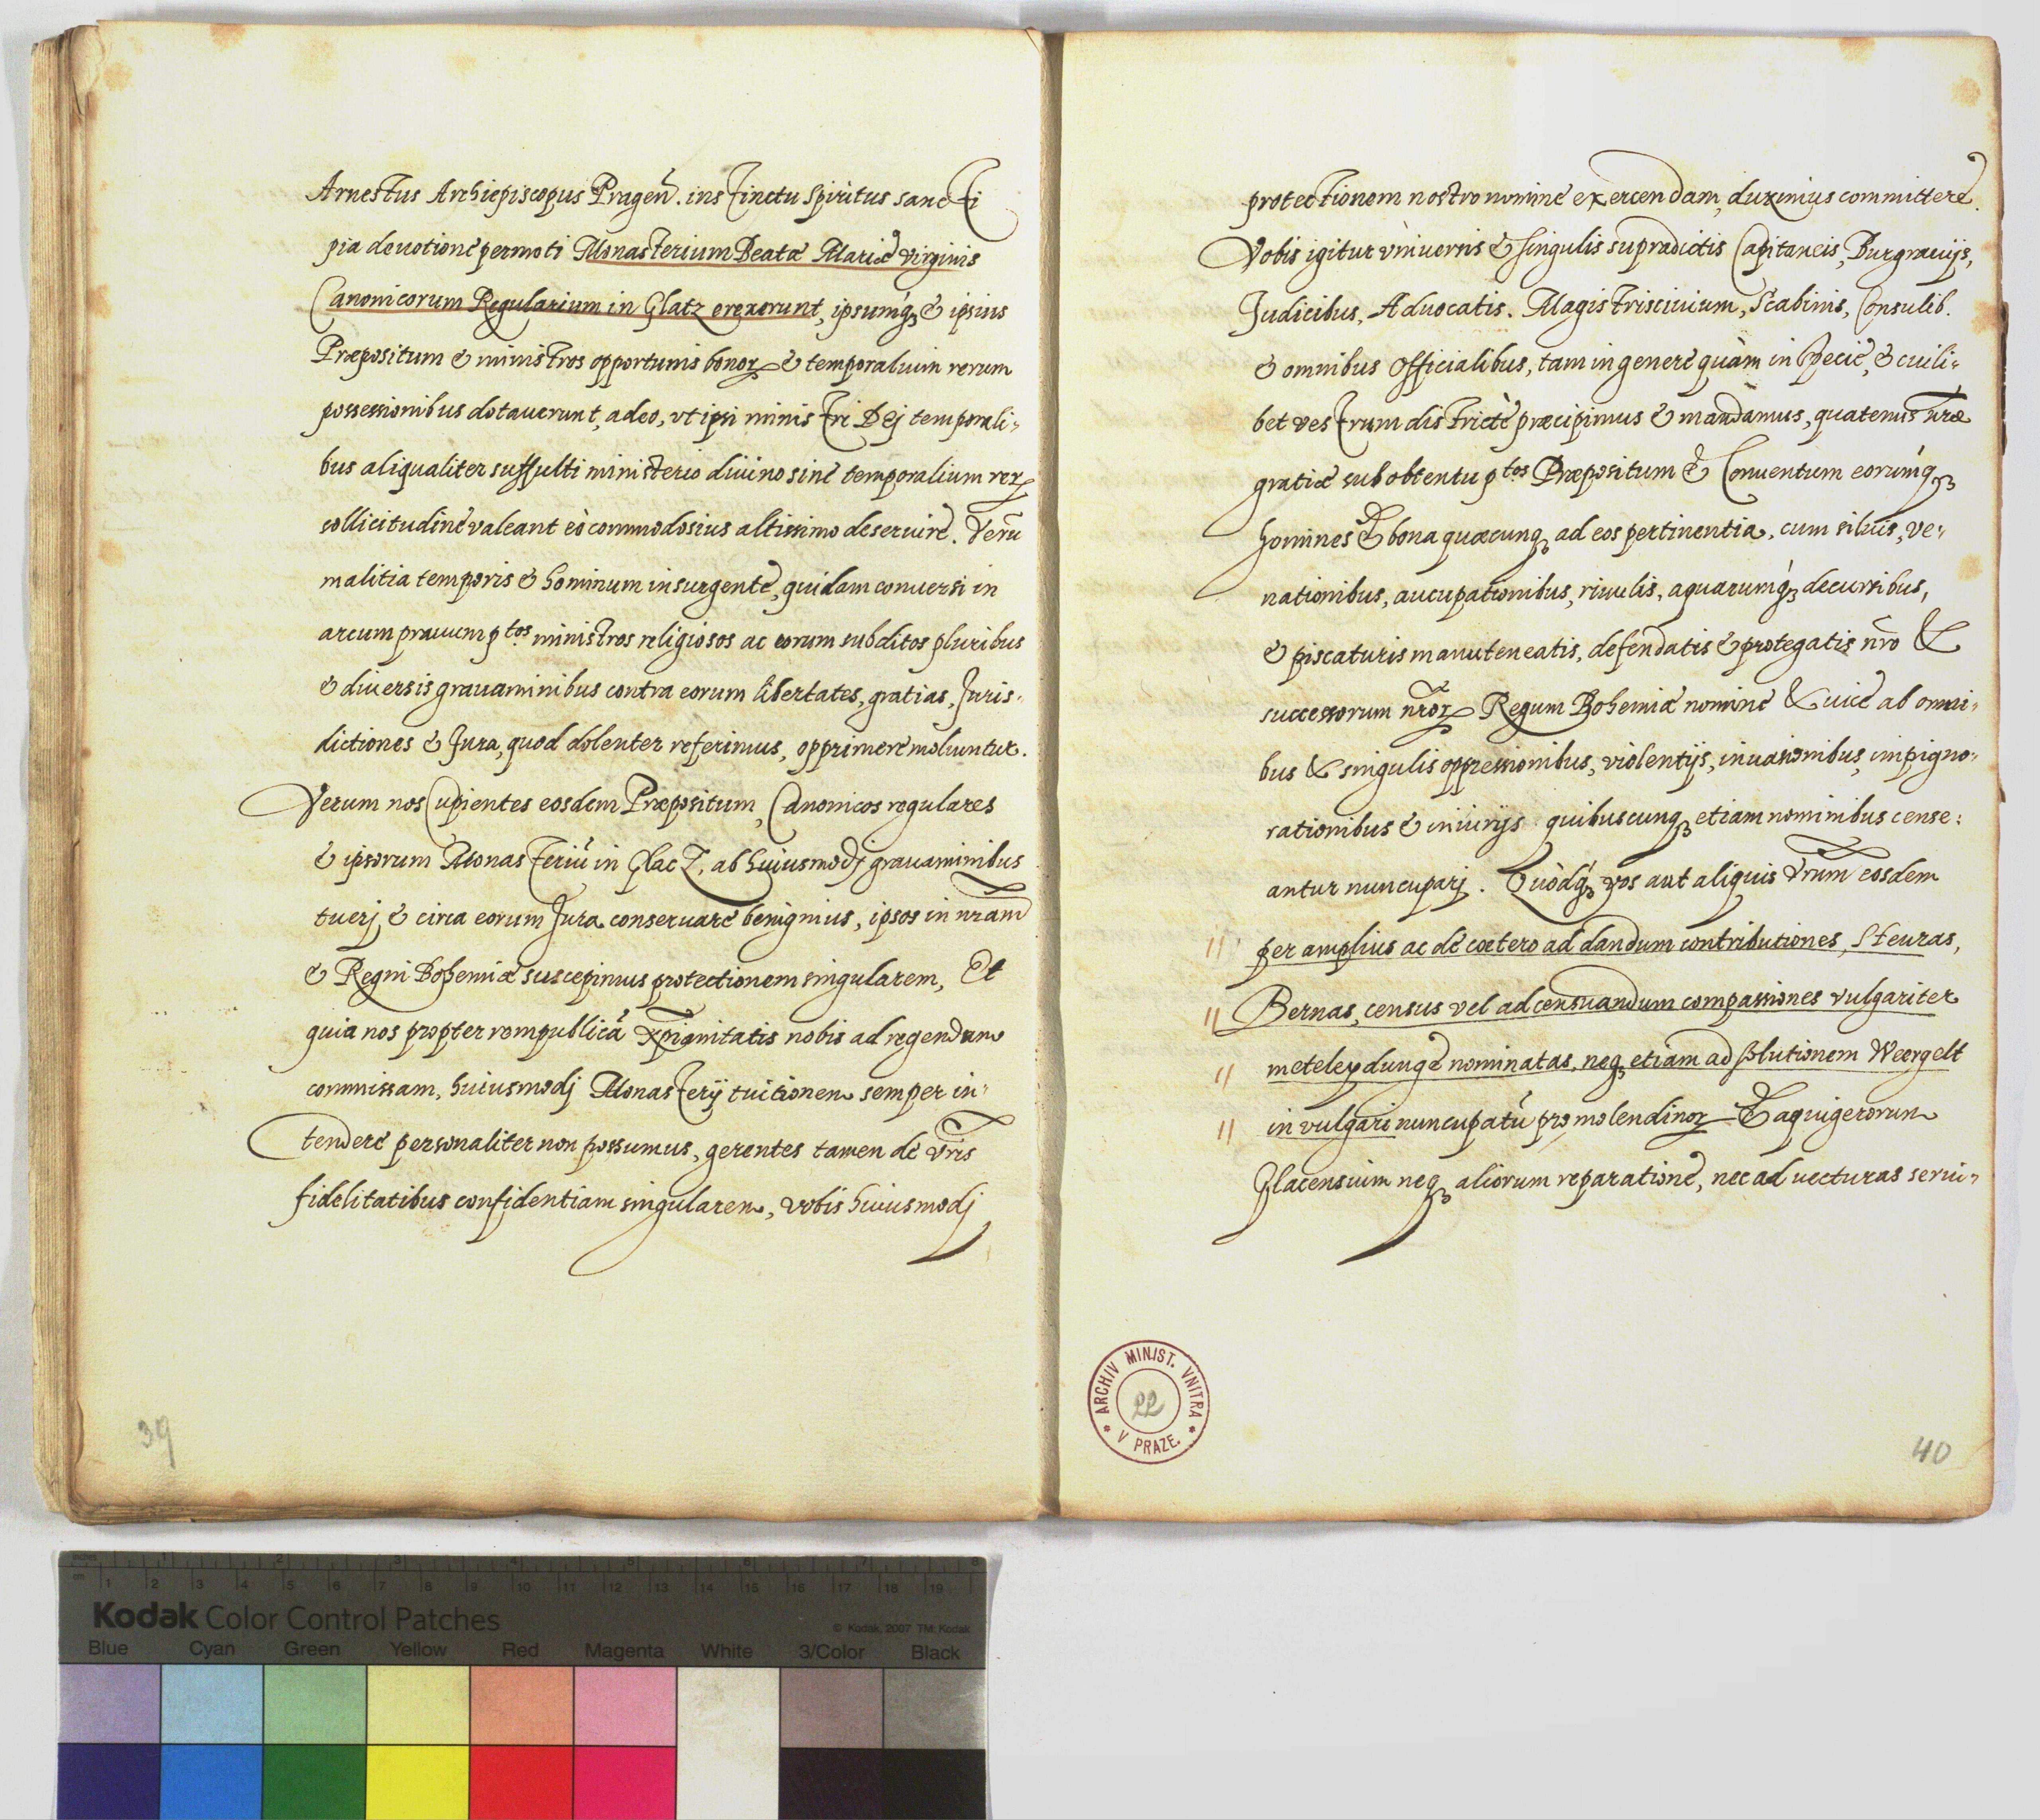 Arnestus Archiepiscopus Pragen̄. instinctu Spiritus sancti
pia deuotione permoti Monasterium Beatæ Mariæ virginis
Canonicorum Regularium in Glatz erexerunt, ipsumq́ꝫ & ipsius
Præpositum & ministros opportunis bonoꝝ & temporalium rerum
possessionibus dotauerunt, adeo, vt ipsi ministri Dej temporali-
bus aliqualiter suffulti ministerio diuino sine temporalium reꝝ
sollicitudine valeant eò commodosius altissimo deseruire. Verū
malitia temporis & hominum insurgente, quidam conuersi in
arcum prauum ptos ministros religiosos ac eorum subditos pluribus
& diuersis grauaminibus contra eorum libertates, gratias, Juris-
dictiones & Jura, quod dolenter referimus, opprimere moliuntur.
Verum nos Cupientes eosdem Præpositum, Canonicos regulares
& ipsorum Monasteriū in Glacz, ab huiusmodj grauaminibus
tuerj & circa eorum Jura conseruare benignius, ipsos in nr̄am
& Regni Bohemiæ suscepimus protectionem singularem, Et
quia nos propter rempublicā xp̄ianitatis nobis ad regendam
commissam, huiusmodj Monasterij tuitionem semper in-
tendere personaliter non possumus, gerentes tamen de vr̄is
fidelitatibus confidentiam singularem, vobis huiusmodj
39
protectionem nostro nomine exercendam, duximus committere.
Vobis igitur vniuersis & singulis supradictis Capitaneis, Burgrauijs,
Judicibus, Aduocatis. Magistris ciuium, Scabinis, Consulib.
& omnibus Officialibus, tam in genere quàm in specie, & cuili-
bet vestrum districtè præcipimus & mandamus, quatenus nr̄æ
gratiæ sub obtentu ptos Præpositum & Conuentum eorumq́ꝫ
homines & bona quæcunqꝫ ad eos pertinentia, cum siluis, ve-
nationibus, aucupationibus, riuulis, aquarumq́ꝫ decursibus,
& piscaturis manuteneatis, defendatis & protegatis nr̄o &
successorum nr̄oꝝ Regum Bohemiæ nomine & vice ab omni-
bus & singulis oppressionibus, violentijs, inuasionibus, impigno-
rationibus & iniurijs quibuscunqꝫ etiam nominibus cense-
antur nuncuparj. Quòdq́ꝫ vos aut aliquis vr̄um eosdem
per amplius ac de cætero ad dandum contributiones, Steuras,
Bernas, census vel ad censuandum compassiones vulgariter
meteleydunge nominatas, neqꝫ etiam ad solutionem Weergelt
in vulgari nuncupatū pro molendinoꝝ & aquigerorum
Glacensium neqꝫ aliorum reparatione, nec ad vecturas serui-
ARCHIV MINIST. VNITRA V PRAZE.
22
40
Kodak Color Control Patches
© Kodak, 2007 TM: Kodak
Blue Cyan Green Yellow Red Magenta White 3/Color Black
inches 1 2 3 4 5 6 7 8
cm 1 2 3 4 5 6 7 8 9 10 11 12 13 14 15 16 17 18 19